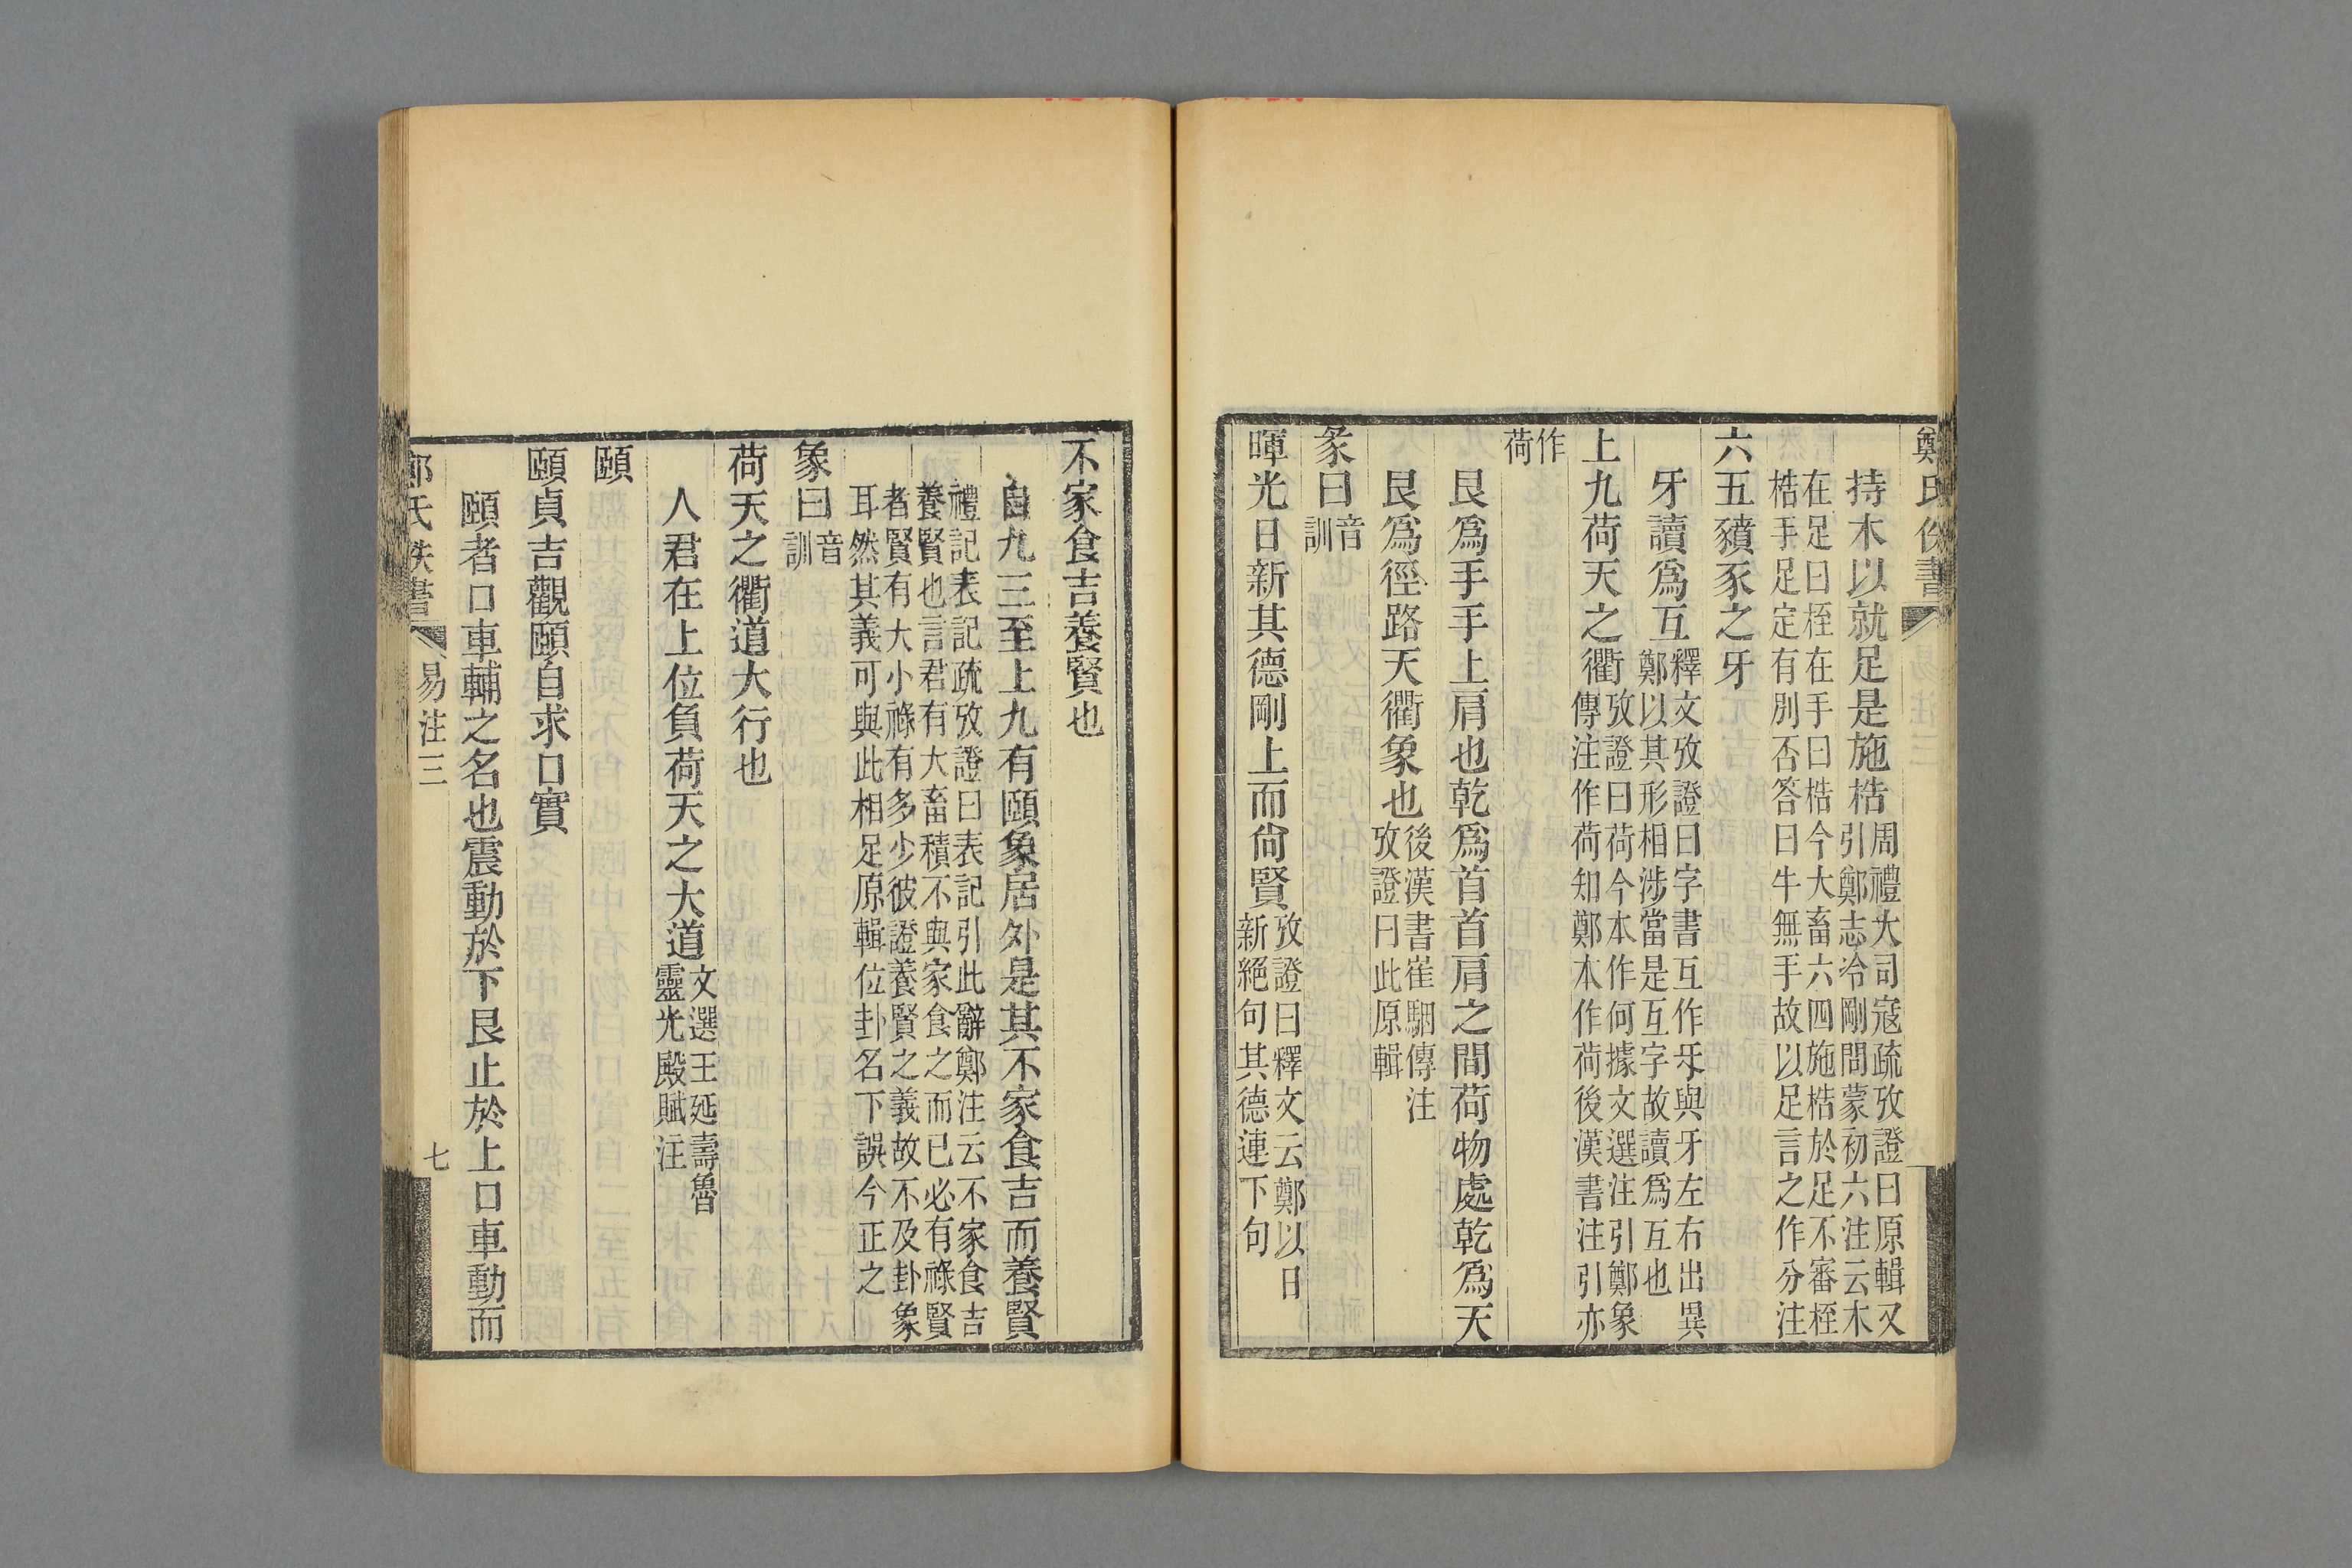 鄭氏佚書
持木以就足是施梏周禮大司寇疏攷證曰原輯又
引鄭志冷剛問蒙初六注云木
在足曰桎在手曰梏今大畜六四施梏於足不審桎
梏手足定有別否答曰牛無手故以足言之作分注
六五豶豕之牙
牙讀爲互釋文攷證曰字書互作𤘈與牙左右出異
鄭以其形相涉當是互字故讀爲互也
上九荷天之衢攷證曰荷今本作何據文選注引鄭象
傳注作荷知鄭本作荷後漢書注引亦
作
荷
艮爲手手上肩也乾爲首首肩之間荷物處乾爲天
艮爲徑路天衢象也後漢書崔駰傳注
攷證曰此原輯
彖曰音
訓
暉光日新其德剛上而尙賢攷證曰釋文云鄭以日
新絕句其德連下句
不家食吉養賢也
自九三至上九有頤象居外是其不家食吉而養賢
禮記表記疏攷證曰表記引此辭鄭注云不家食吉
養賢也言君有大畜積不與家食之而已必有祿賢
者賢有大小祿有多少彼證養賢之義故不及卦象
耳然其義可與此相足原輯位卦名下誤今正之
象曰音
訓
荷天之衢道大行也
人君在上位負荷天之大道文選王延壽魯
靈光殿賦注
頤
頤貞吉觀頤自求口實
頤者口車輔之名也震動於下艮止於上口車動而
氏佚書
易注三
七